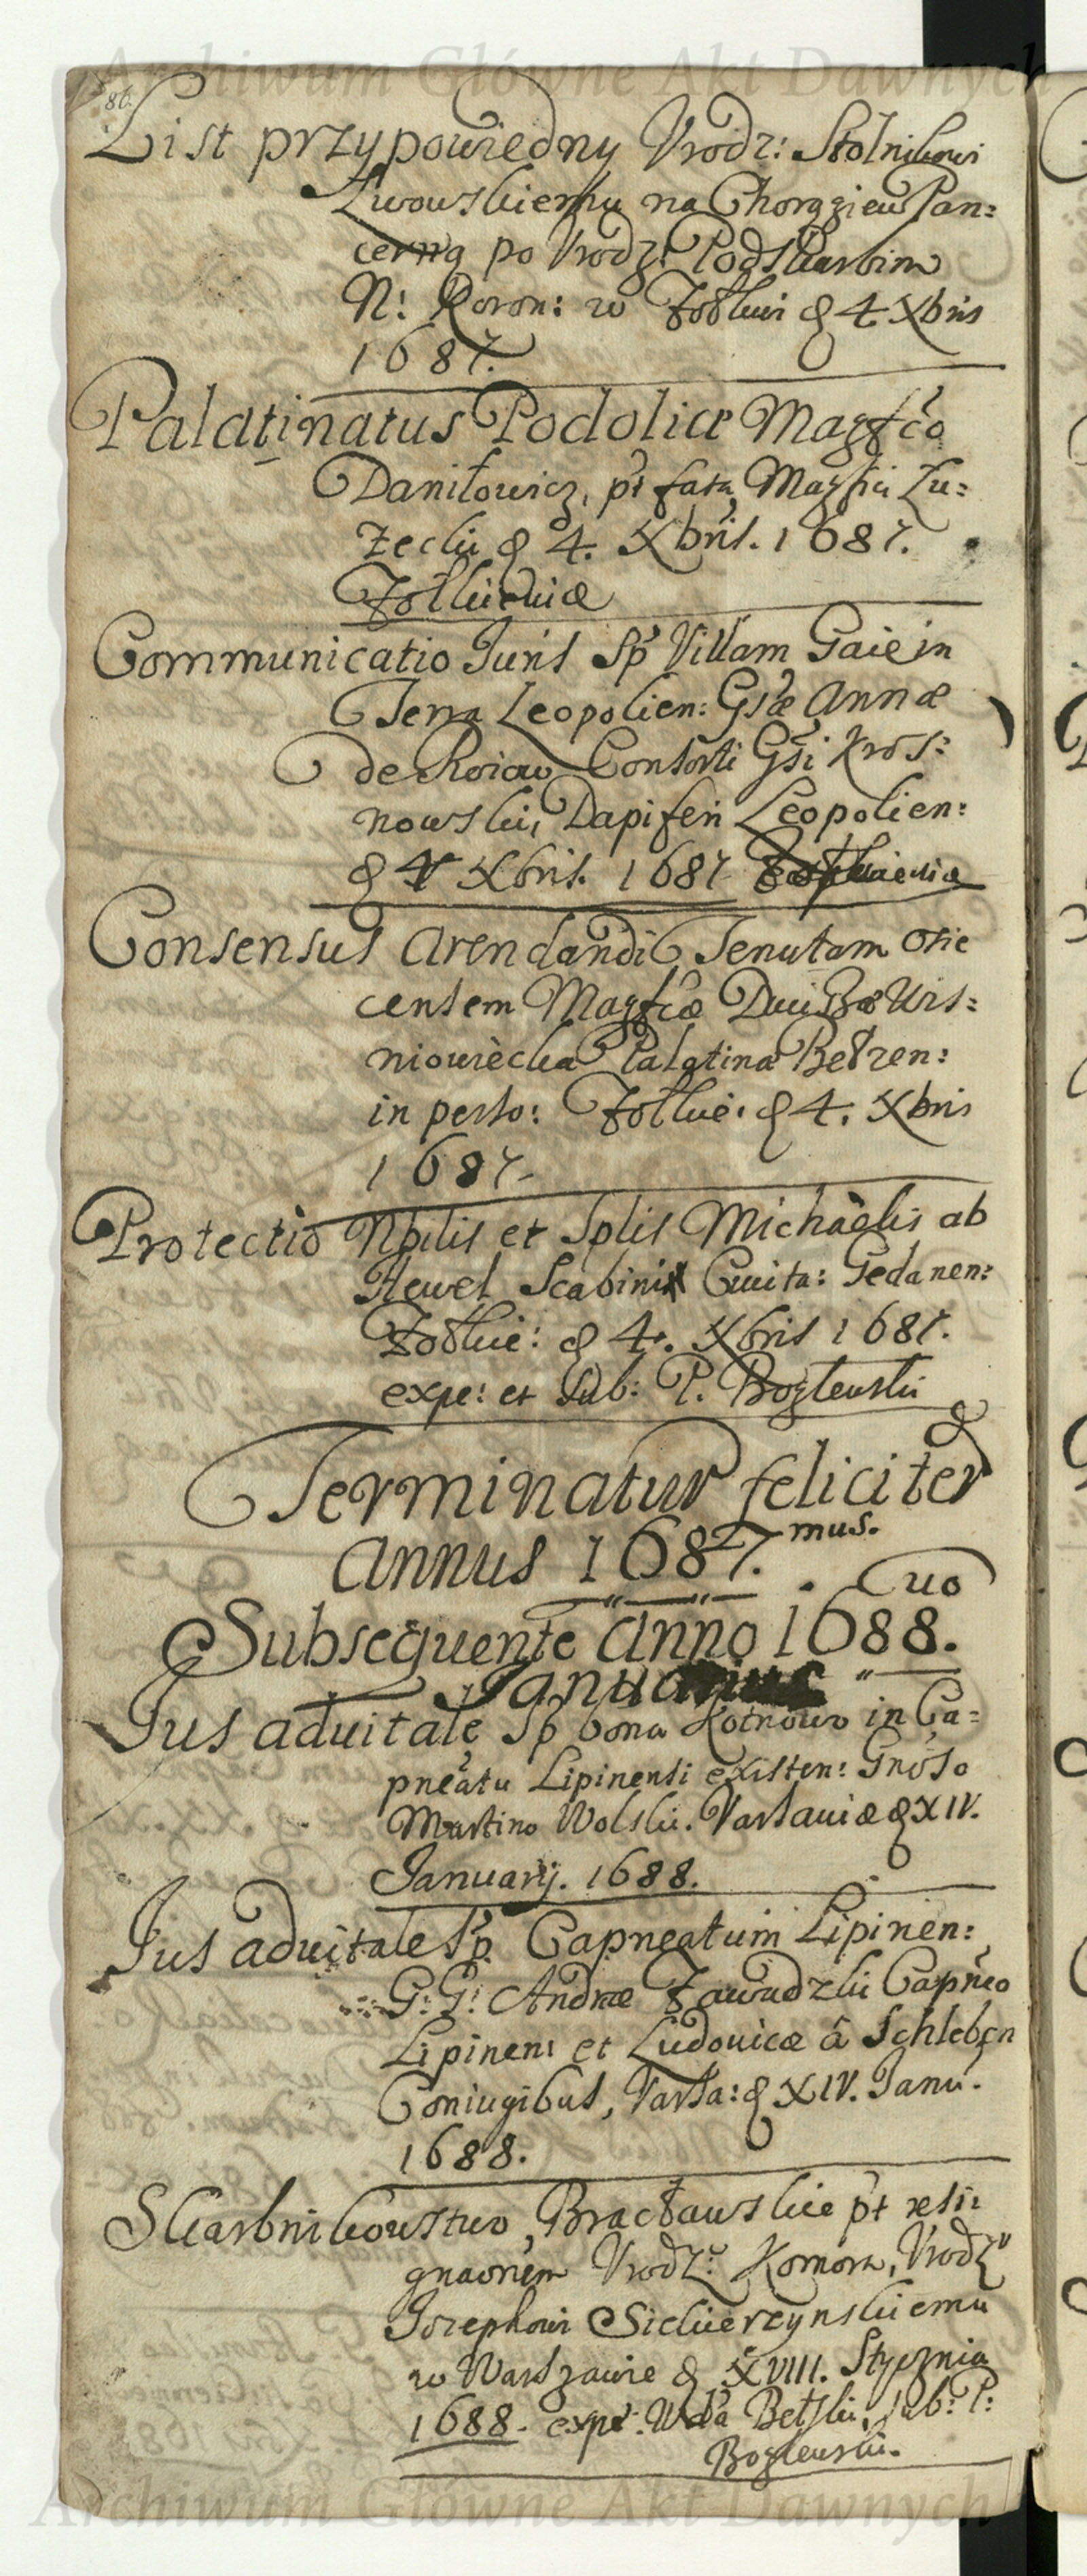 Archiwum Główne Akt Dawnych
86.
List przypowiedny Vrodz: Stolnikowi
Lwowskiemu na Chorągiew Pan:
cerną po Vrodz: Podskarbim
N: Koron: w Żołkwi d 4 Xbris
1687.
Palatinatus Podoliæ Magfco
Daniłowicz, pt fata Magfici Lu:
żecki d 4. Xbris. 1687.
Żołkieviæ
Communicatio Juris Sp Villam Gaie in
Terra Leopolien: Gsæ Annæ
de Roiow Consorti Gsi Kros:
nowski, Dapiferi Leopolien:
d 4 Xbris. 1687 Żołkieviæ
Consensus Arendandi Tenutam Osie
censem Magfcæ Ducissæ Wis:
niowiecka Palatinæ Bełzen:
in perso: Żołkie: d 4. Xbris
1687.
Protectio Nbilis et Splis Michaelis ab
Hewel Scabini Civita: Gedanen:
Żołkie: d 4. Xbris 1687.
expe: et sub: P. Bogleuski
Terminatur feliciter
annus 1687.mus.
Subsequente Anno 1688.vo
Januarius
Jus advitale Sp bona Kotnowo in Ca:
pneatu Lipinensi existen: Gnoso
Martino Wolski. Varsaviæ d XIV.
Januarij. 1688.
Jus advitale Sp Capneatum Lipinen:
G: G: Andreæ Zawadzki Capneo
Lipinen: et Ludovicæ â Schleben
Coniugibus, Varsa: d XIV. Janu.
1688.
Skarbnikowstwo Bracławskie pt resi:
gnaonem Vrodz: Komora, Vrodz
Iozephowi Siekierzynskiemu
w Warszawie d XVIII. Stycznia
1688. expe: Wda Bełski, sub: P:
Bogleuski.
Archiwum Główne Akt Dawnych